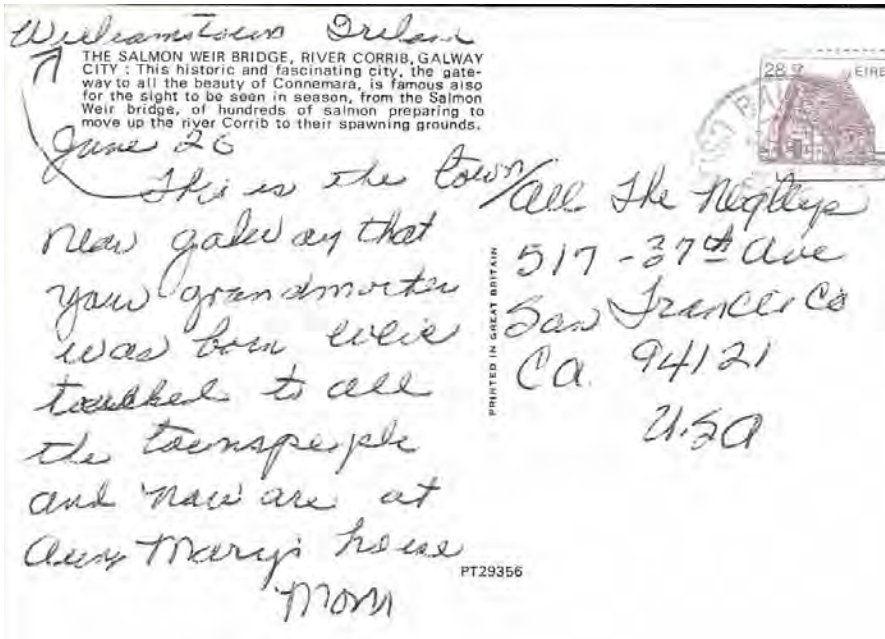 Williamstown Ireland
THE SALMON WEIR BRIDGE, RIVER CORRIB, GALWAY
CITY : This historic and fascinating city, the gate-
way to all the beauty of Connemara, is famous also
for the sight to be seen in season, from the Salmon
Weir bridge, of hundreds of salmon preparing to
move up the river Corrib to their spawning grounds.
June 26
This is the town
near galway that
your grandmother
was born
talked to all
the townspeople
and now are at
Aunt Mary's house
Mom
PT29356
PRINTED IN GREAT BRITAIN
28 EIRE
All The
517 - 37th Ave
San Francisco
Ca. 94121
USA